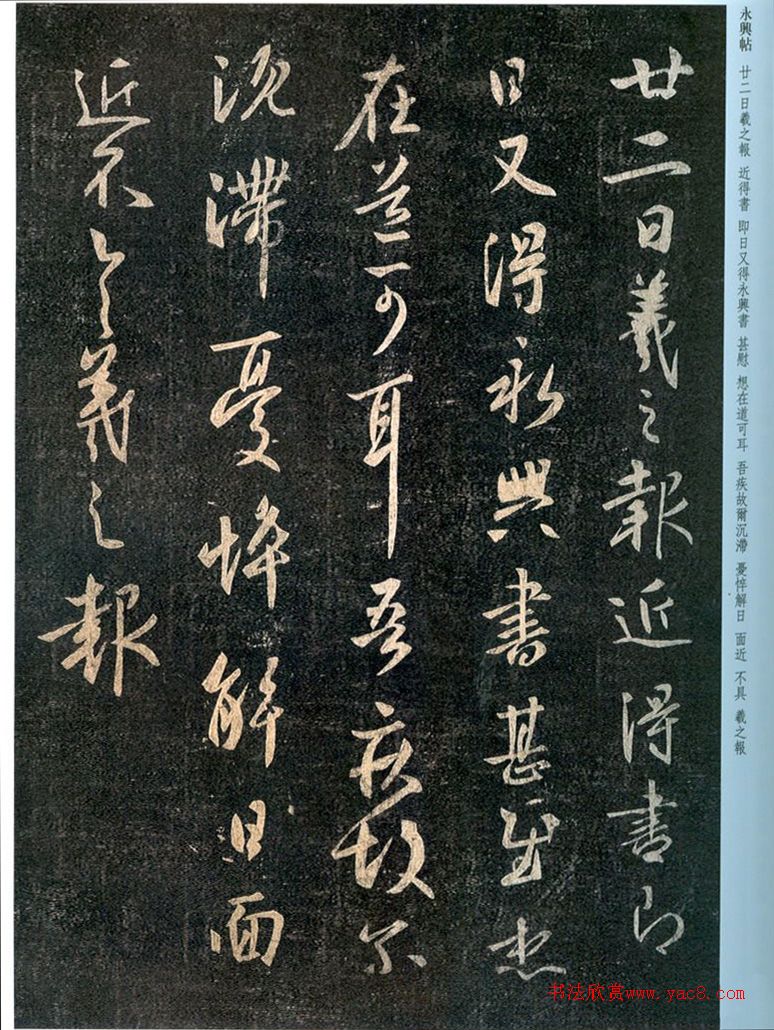 永興帖 廿二日羲之報 近得書 即日又得永興書 甚慰 想在道可耳 吾疾故爾沉滯 憂悴解日 面近 不具 羲之報
廿二日羲之報近得書即
日又得永興書甚慰想
在道可耳吾疾故尔
沉滯憂悴解日面
近不具羲之報
书法欣赏www.yac8.com